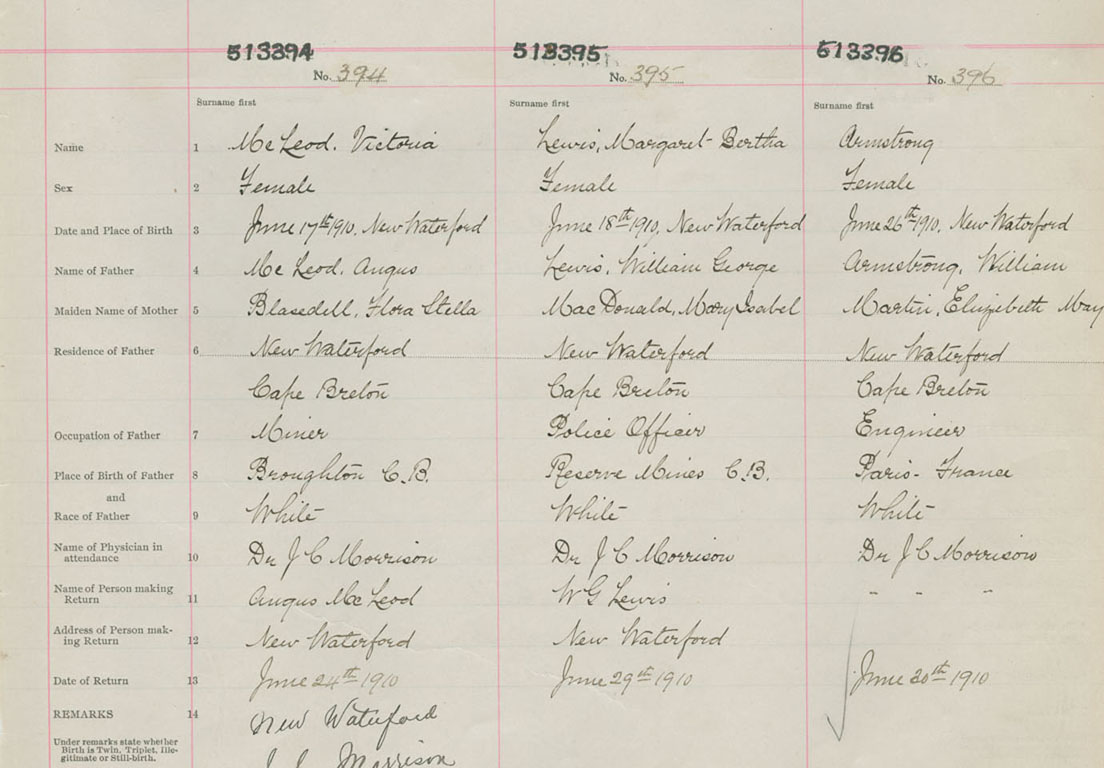 513394 513395 513396
No. 394 No. 395 No. 396
Surname first Surname first Surname first
Name 1 McLeod. Victoria Lewis, Margaret Bertha Armstrong
Sex 2 Female Female Female
Date and Place of Birth 3 June 17th 1910, New Waterford June 18th 1910, New Waterford June 26th 1910, New Waterford
Name of Father 4 McLeod, Angus Lewis, William George Armstrong, William
Maiden Name of Mother 5 Blasedell, Flora Stella MacDonald, Mary Isabel Martin, Elizibeth May
Residence of Father 6 New Waterford New Waterford New Waterford
Cape Breton Cape Breton Cape Breton
Occupation of Father 7 Miner Police Officer Engineer
Place of Birth of Father 8 Broughton C.B. Reserve Mines C.B. Paris - France
and
Race of Father 9 White White White
Name of Physician in
attendance 10 Dr J C Morrison Dr J C Morrison Dr J C Morrison
Name of Person making
Return 11 Angus McLeod W G Lewis " " "
Address of Person mak-
ing Return 12 New Waterford New Waterford
Date of Return 13 June 24th 1910 June 29th 1910 June 30th 1910
REMARKS 14 New Waterford
Under remarks state whether
Birth is Twin, Triplet, Ille-
gitimate or Still-birth. Morrison